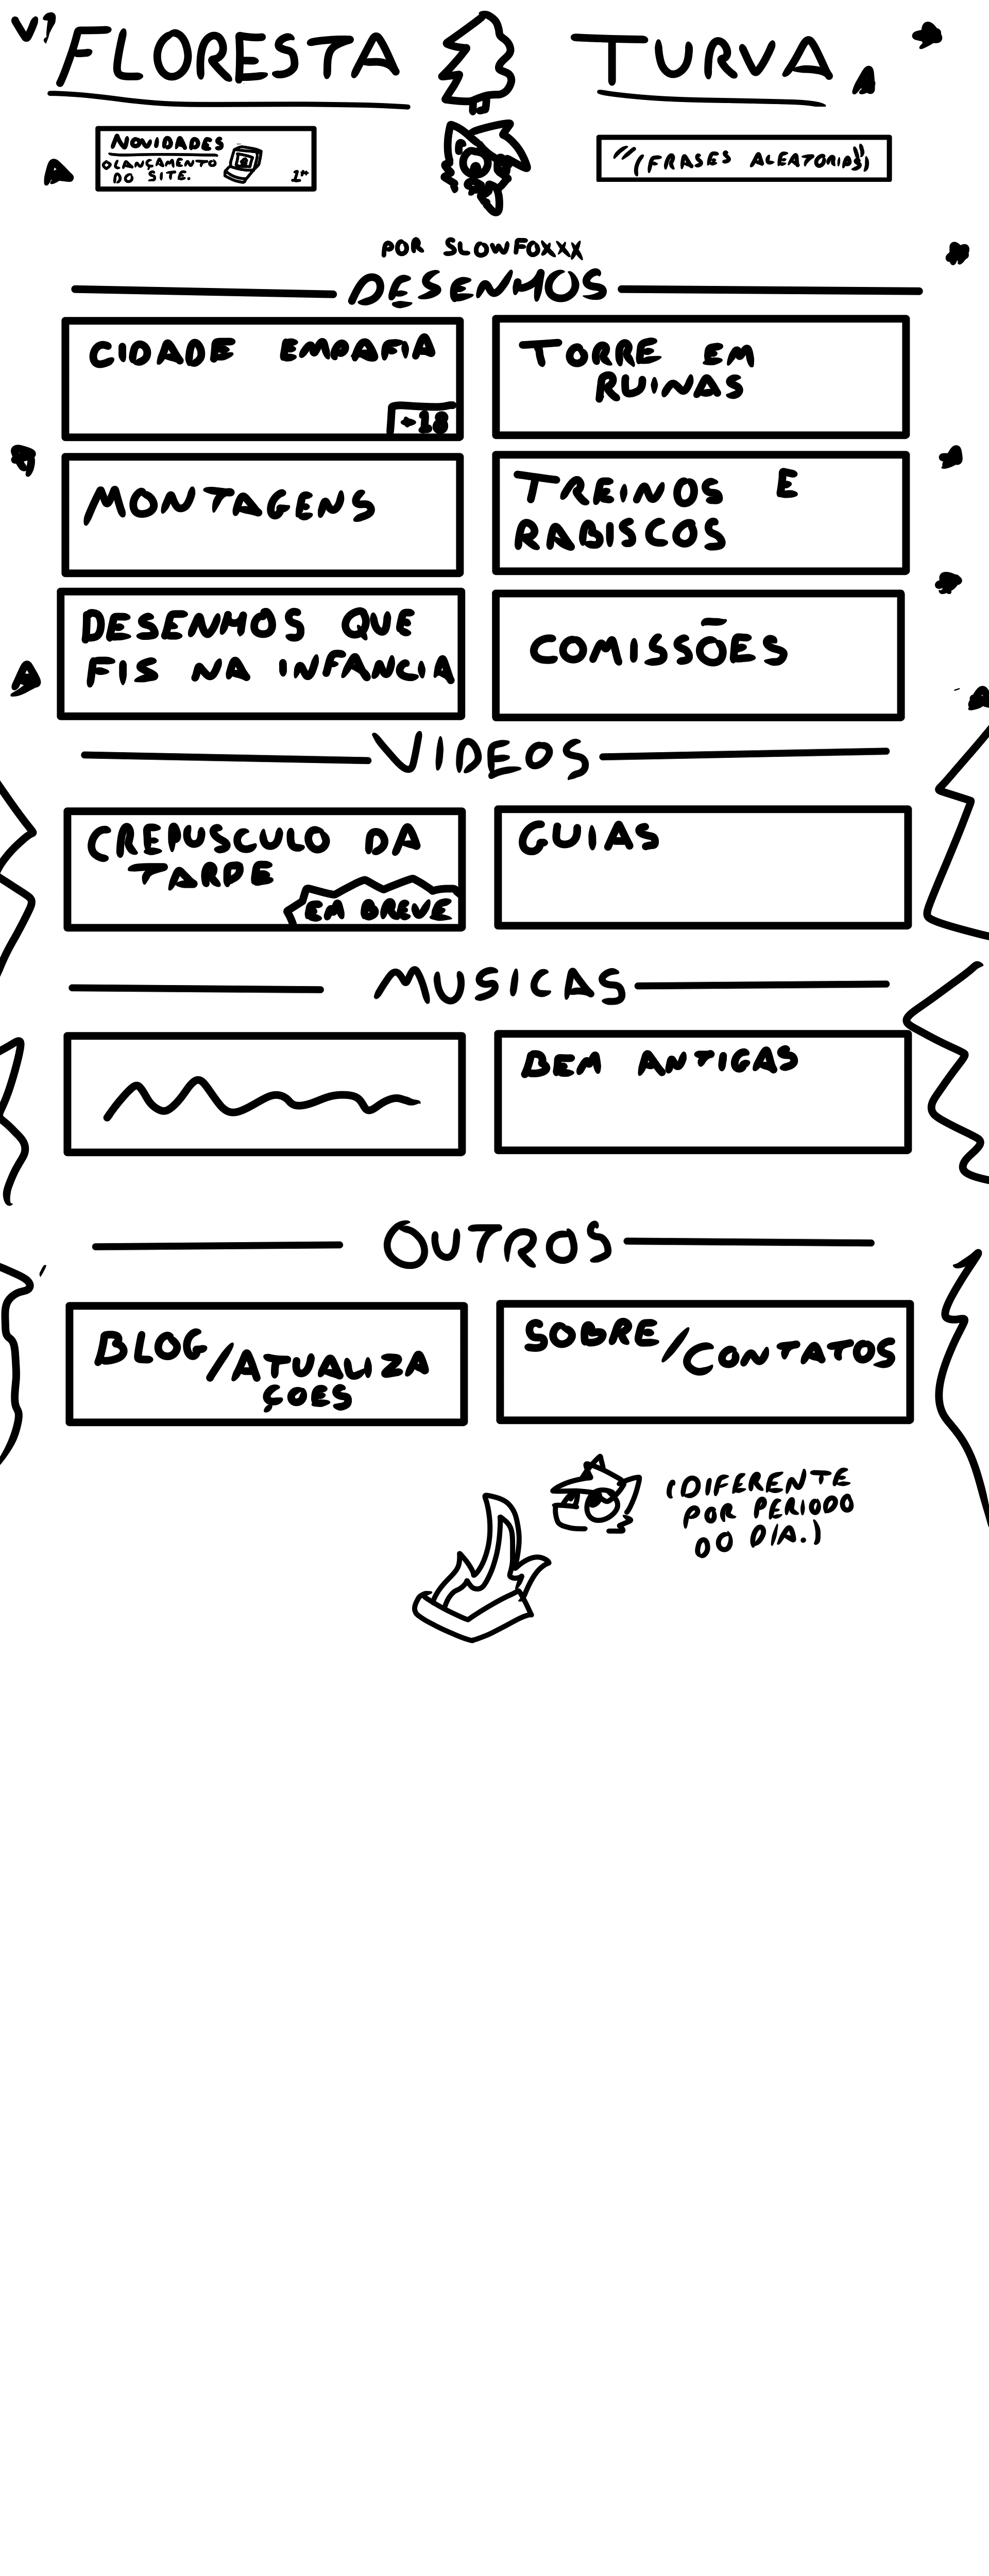 V1
FLORESTA TURVA
NOVIDADES
O LANÇAMENTO
DO SITE.
1º
"(FRASES ALEATORIAS)"
POR SLOWFOXXX
DESENHOS
CIDADE EMPAFIA
+18
TORRE EM
RUINAS
MONTAGENS
TREINOS E
RABISCOS
DESENHOS QUE
FIS NA INFANCIA
COMISSÕES
VIDEOS
CREPUSCULO DA
TARDE
EM BREVE
GUIAS
MUSICAS
BEM ANTIGAS
OUTROS
BLOG/ATUALIZA
ÇOES
SOBRE/CONTATOS
(DIFERENTE
POR PERIODO
DO DIA.)